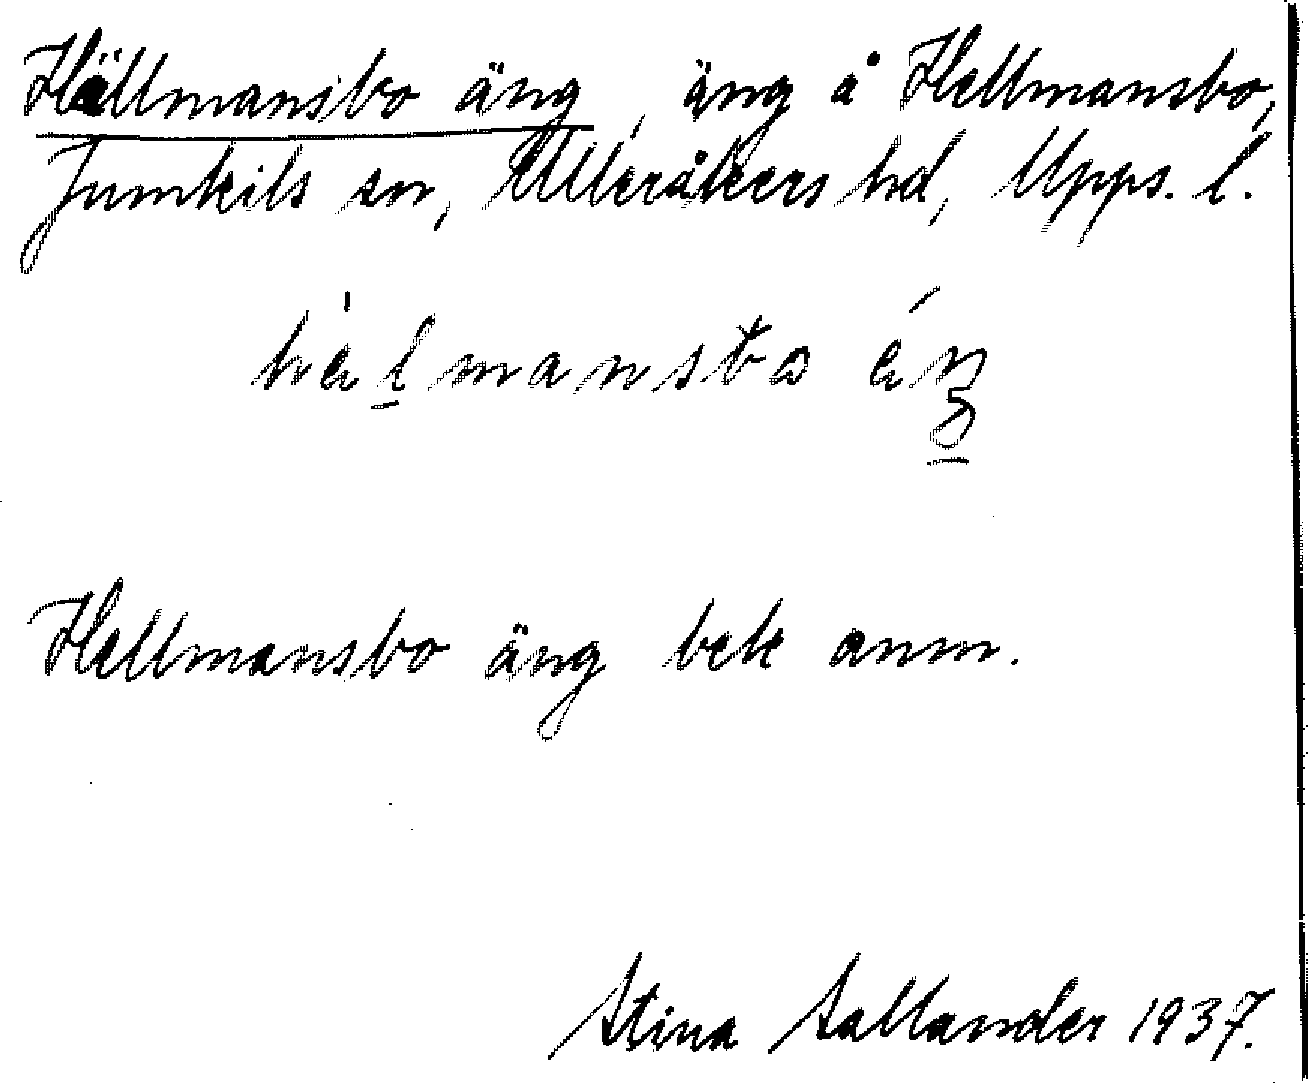 Hällmansbo äng, äng å Hellmansbo,
Jumkils sn, Ulleråkers hd, Upps. l.
Hellmansbo äng bek anm.
Stina Sallander 1937.